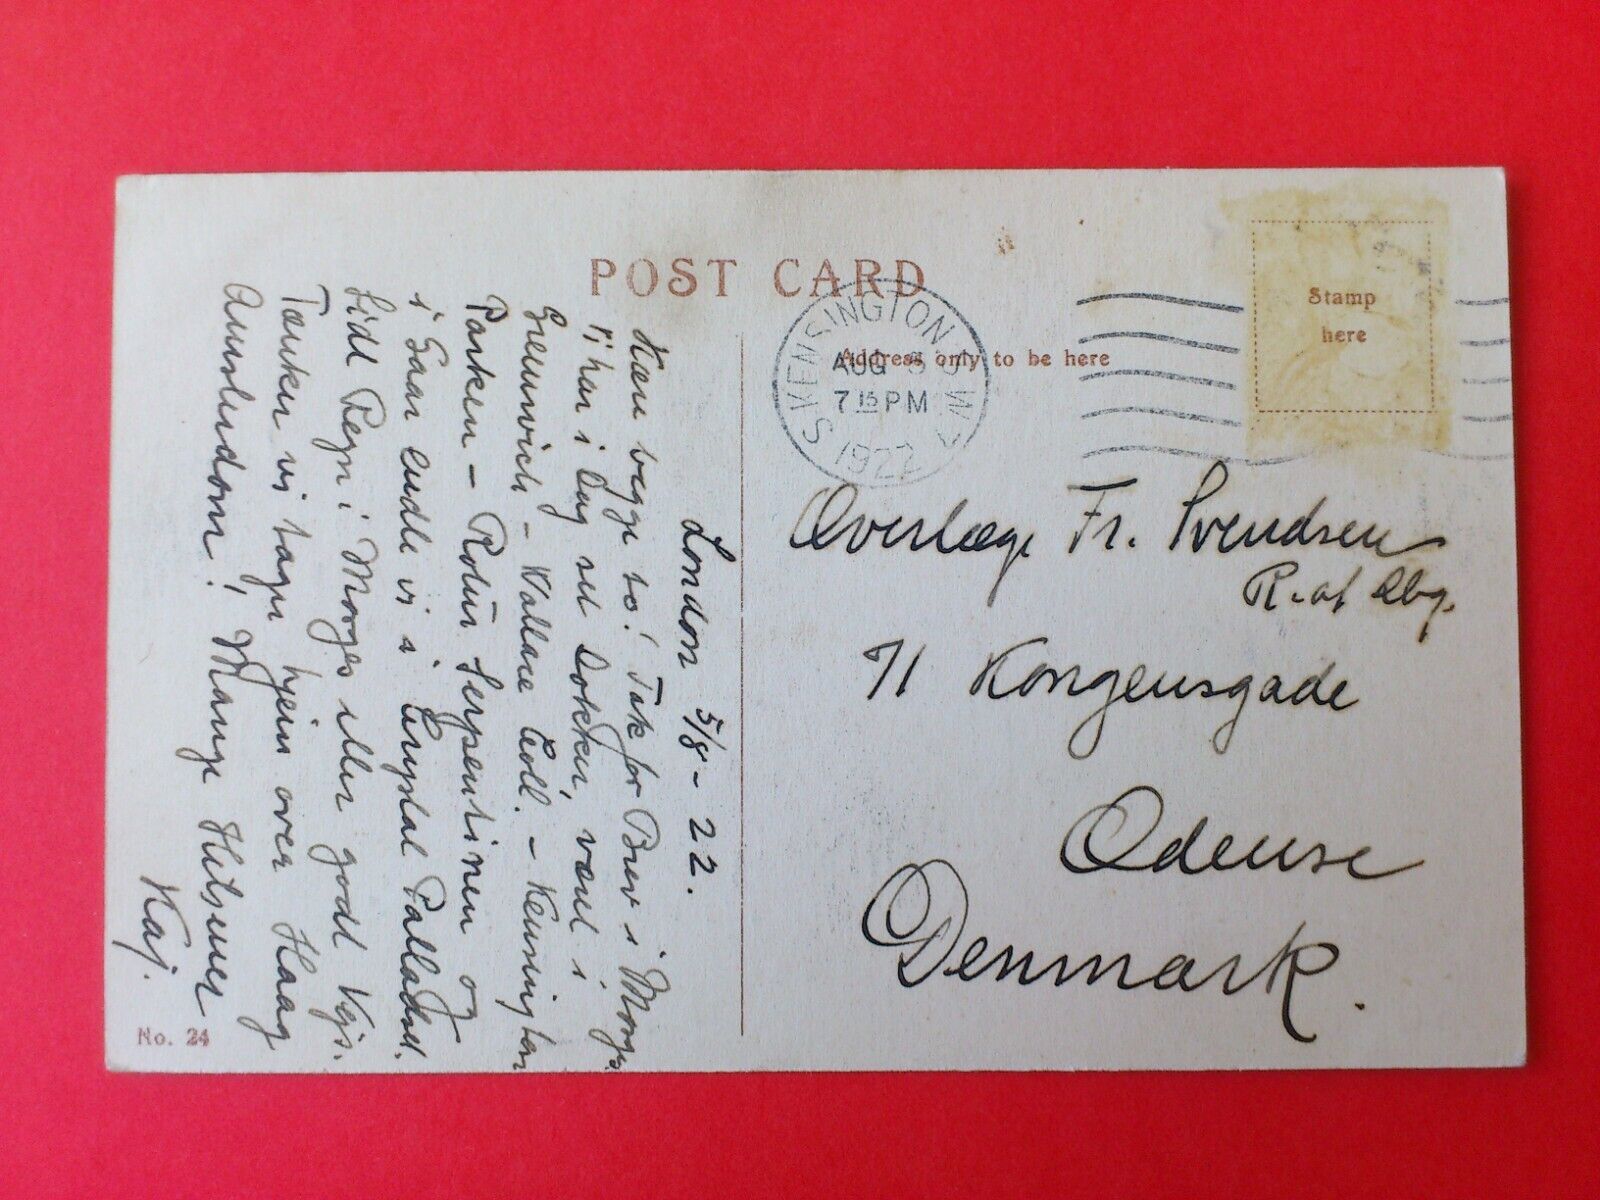 POST CARD
Address only to be here
Stamp
here
S. KENSINGTON S.W.7
AUG 5
7 15 PM
1922
London 5/8-22.
Kære begge to! Tak for Brev i Morges.
Vi har i Dag set Dokker, været i
Greenwich - Wallace Coll. - Kensington
Parken - Rotur Serpentinen og
i Gaar endte vi i Crystal Palladset.
Lidt Regn i Morges eller godt Vejr.
Tænker vi tager hjem over Haag
Amsterdam! Mange Hilsner
Kaj.
No. 24
Overlæge Fr. Svendsen
R. af Dbg.
71 Kongensgade
Odense
Denmark.